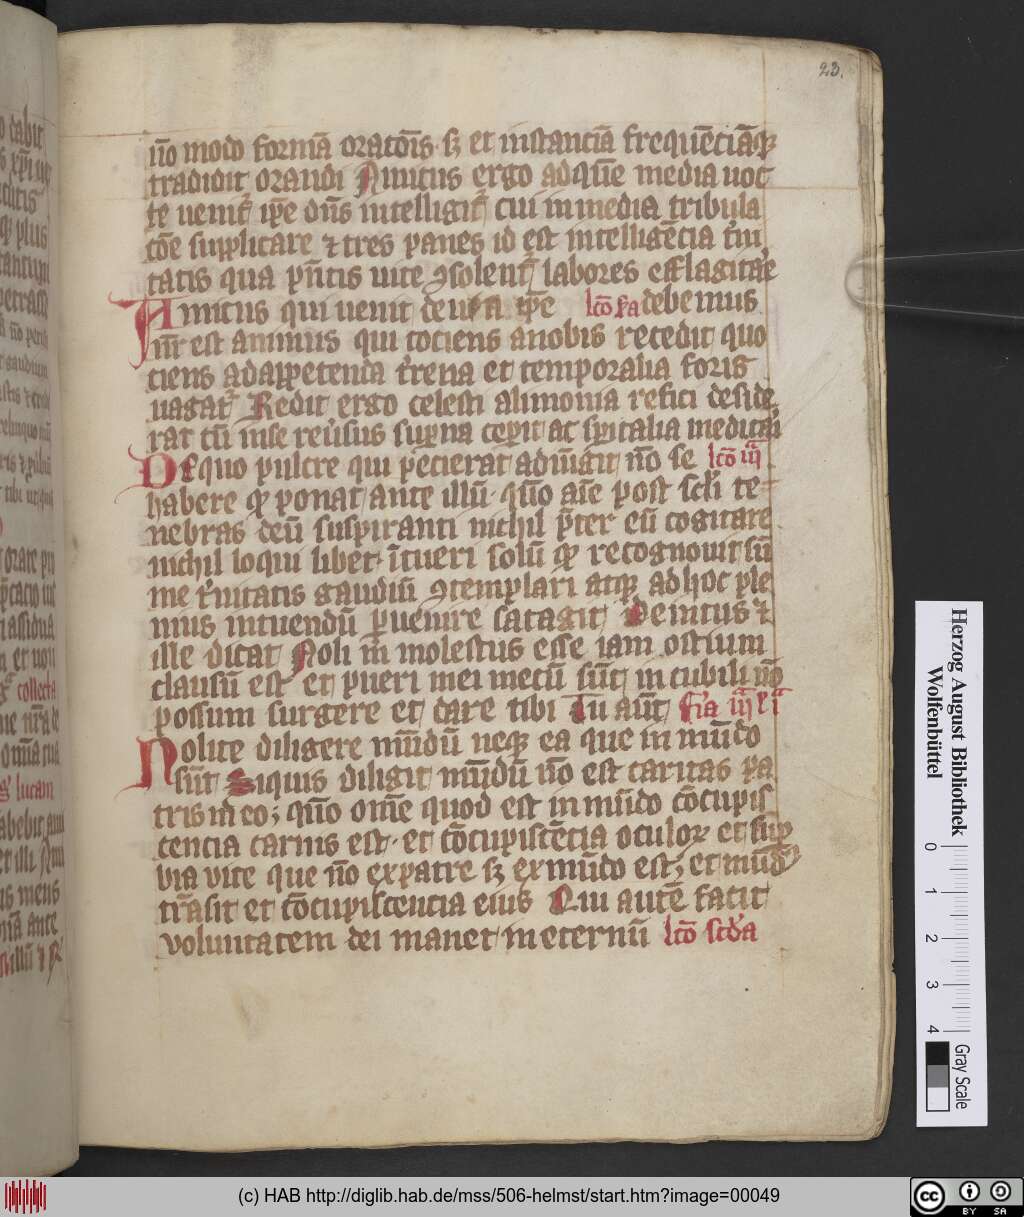 23.
nō modo formā oratōis sꝫ et instanciā frequēciāqꝫ
tradidit orandi Amicus ergo ad quē media noc
te uenit ip̄e dn̄s intelligit᷑ cui in media tribula
cōe supplicare ⁊ tres panes id est intelligēcia t̄ni
tatis qua p̄ntis uite ꝯsolent᷑ labores efflagitare
Amicus qui uenit de uia ip̄e lc̄o sc̄da debemus
nr̄ est animus qui tociens a nobis recedit quo
ciens ad appetenda t̓rena et temporalia foris
uagat᷑ Redit ergo celesti alimonia refici deside
rat cū in se reu̓sus sup̓na cep̓it ac sp̄italia meditari
De quo pulcre qui pecierat adiūgit nō se lc̄o iij
habere qꝫ ponat ante illū quō aīe post sc̄li te
nebras deū suspiranti nichil p̄ter eū cogitare
nichil loqui libet ītueri solū qꝫ recognouit sū
me t̓nitatis gaudiū ꝯtemplari atqꝫ ad hoc ple
nius intuendū ꝑuenire satagit De intus ⁊
ille dicat Noli m̄ molestus esse iam ostium
clausū est et pueri mei mecū sūt in cubili nō
possum surgere et dare tibi Tu aūt f̄ia iij l̄ i
Nolite diligere mūdū neqꝫ ea que in mūdo
sūt Siquis diligit mūdū nō est caritas pa
tris in eo; quō om̄e quod est in mūdo cōcupis
cencia carnis est et cōcupiscēcia oculoꝝ et sup̓
bia vite que nō ex patre sꝫ ex mūdo est; et mūdꝰ
trāsit et cōcupiscencia eius Qui autē facit
voluntatem dei manet in eternū lc̄o sc̄da
Herzog August Bibliothek
Wolfenbüttel
0 1 2 3 4
Gray Scale
(c) HAB http://diglib.hab.de/mss/506-helmst/start.htm?image=00049
cc BY SA